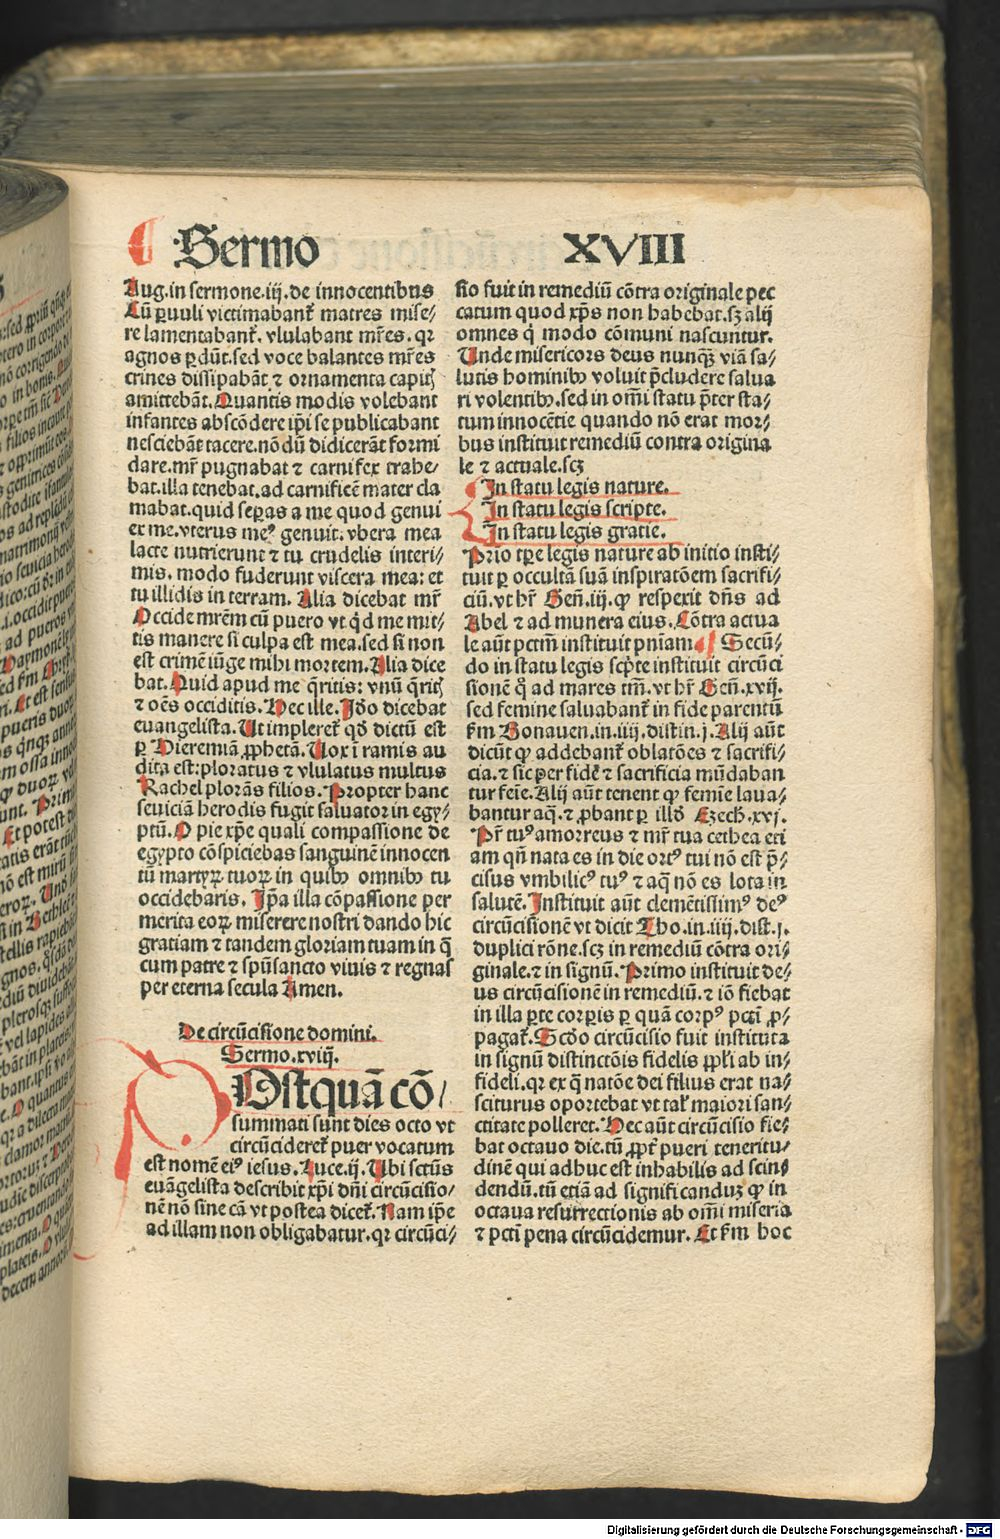 Sermo XVIII
Aug. in sermone.iij. de innocentibus
Cū puuli victimabanť matres mise⸗
re lamentabanť. vlulabant mr̄es. qr
agnos ꝑdūt. sed voce balantes mr̄es
crines dissipabāt ⁊ ornamenta capitꝭ
amittebāt. Quantis modis volebant
infantes abscōdere ip̄i se publicabant
nesciebāt tacere. nōdū didicerāt formi
dare. mr̄ pugnabat ⁊ carnifex trahe⸗
bat. illa tenebat. ad carnificē mater cla
mabat. quid seꝑas a me quod genui
ex me. vterus meꝰ genuit. vbera mea
lacte nutrierunt ⁊ tu crudelis interi⸗
mis. modo fuderunt viscera mea: et
tu illidis in terram. Alia dicebat mr̄
Occide mr̄em cū puero vt qͥd me mit⸗
tis manere si culpa est mea. sed si non
est crimē iūge mihi mortem. Alia dice
bat. Quid apud me q̄ritis: vnū q̄ritꝭ
⁊ oēs occiditis. Hec ille. Iđo dicebat
evangelista. Ut impleret́ qđ dictū est
ꝑ Hieremiā ꝓphetā. Uox ī ramis au
dita est: ploratus ⁊ vlulatus multus
Rachel plorās filios. Propter hanc
seuiciā herodis fugit saluator in egy⸗
ptū. O pie xp̄e quali compassione de
egypto cōspiciebas sanguinē innocen
tū martyꝝ tuoꝝ in quibꝰ omnibꝰ tu
occidebaris. Ip̄a illa cōpassione per
merita eoꝝ miserere nostri dando hic
gratiam ⁊ tandem gloriam tuam in q̄
cum patre ⁊ spūsancto viuis ⁊ regnas
per eterna secula Amen.
De circūcisione domini.
Sermo.xviij.
Ostquā cō⸗
summati sunt dies octo vt
circūcideret́ puer vocatum
est nomē eiꝰ iesus. Luce.ij. Ubi sctūs
euāgelista describit xp̄i dn̄i circūcisio⸗
nē nō sine cā vt postea dicet́. Nam ip̄e
ad illam non obligabatur. qr circūci⸗
sio fuit in remediū cōtra originale pec
catum quod xp̄s non habebat. sꝫ alij
omnes q̇ modo cōmuni nascuntur.
Unde misericors deus nunqͣꝫ viā sa⸗
lutis hominibꝰ voluit p̄cludere salua
ri volentibꝰ. sed in om̄i statu p̄ter sta⸗
tum innocētie quando nō erat mor⸗
bus instituit remediū contra origina
le ⁊ actuale. scꝫ
In statu legis nature.
In statu legis scripte.
In statu legis gratie.
Prio tꝑe legis nature ab initio insti⸗
tuit ꝑ occultā suā inspiratōem sacrifi⸗
ciū. vt hr̄ Geñ.iij. ꝙ respexit dn̄s ad
Abel ⁊ ad munera eius. Cōtra actua
le aūt pctm̄ instituit pniam Secū⸗
do in statu legis scp̄te instituit circūci
sionē qͦ ad mares tm̄. vt hr̄ Geñ.xvij.
sed femine saluabanť in fide parentū
ẜm Bonauen. in.iiij. distin.j. Alij aūt
dicūt ꝙ addebanť oblatōes ⁊ sacrifi⸗
cia. ⁊ sic per fidē ⁊ sacrificia mūdaban
tur feīe. Alij aūt tenent ꝙ femīe laua⸗
bantur aq̄. ⁊ ꝓbant ꝑ illđ Ezech.xvj.
Pr̄ tuꝰ amorreus ⁊ mr̄ tua cethea eti
am qn̄ nata es in die ortꝰ tui nō est p̄⸗
cisus vmbilicꝰ tuꝰ ⁊ aq̄ nō es lota in
salutē. Instituit aūt clemētissimꝰ deꝰ
circūcisionē vt dicit Tho. in.iiij. dist.j.
duplici rōne. scꝫ in remediū cōtra ori⸗
ginale. ⁊ in signū. Primo instituit de⸗
us circūcisionē in remediū. ⁊ iō fiebat
in illa ꝑte corꝑis ꝑ quā corpꝰ pctī ꝓ⸗
pagať. Scđo circūcisio fuit instituta
in signū distinctōis fidelis ppl̄i ab in⸗
fideli. qr ex q̄ natōe dei filius erat na⸗
sciturus oportebat vt tal̄ maiori san⸗
ctitate polleret. Hec aūt circūcisio fie⸗
bat octauo die. tū ꝓpť pueri teneritu⸗
dinē qui adhuc est inhabilis ad scin⸗
dendū. tū etiā ad significanduꝫ ꝙ in
octaua resurrectionis ab om̄i miseria
⁊ pctī pena circūcidemur. Et ẜm hoc
Digitalisierung gefördert durch die Deutsche Forschungsgemeinschaft - DFG